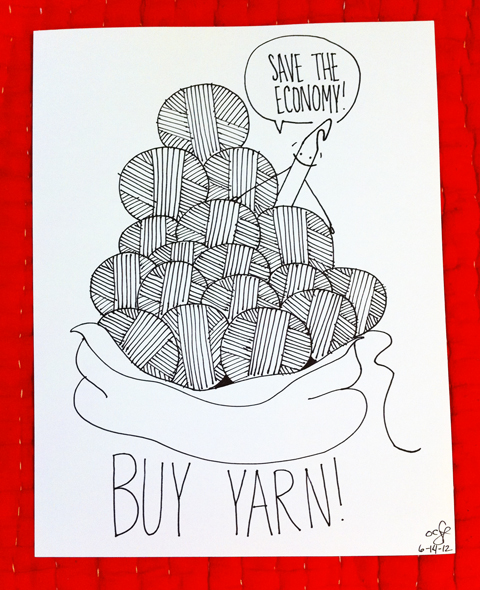 SAVE THE
ECONOMY!
BUY YARN!
6-14-12